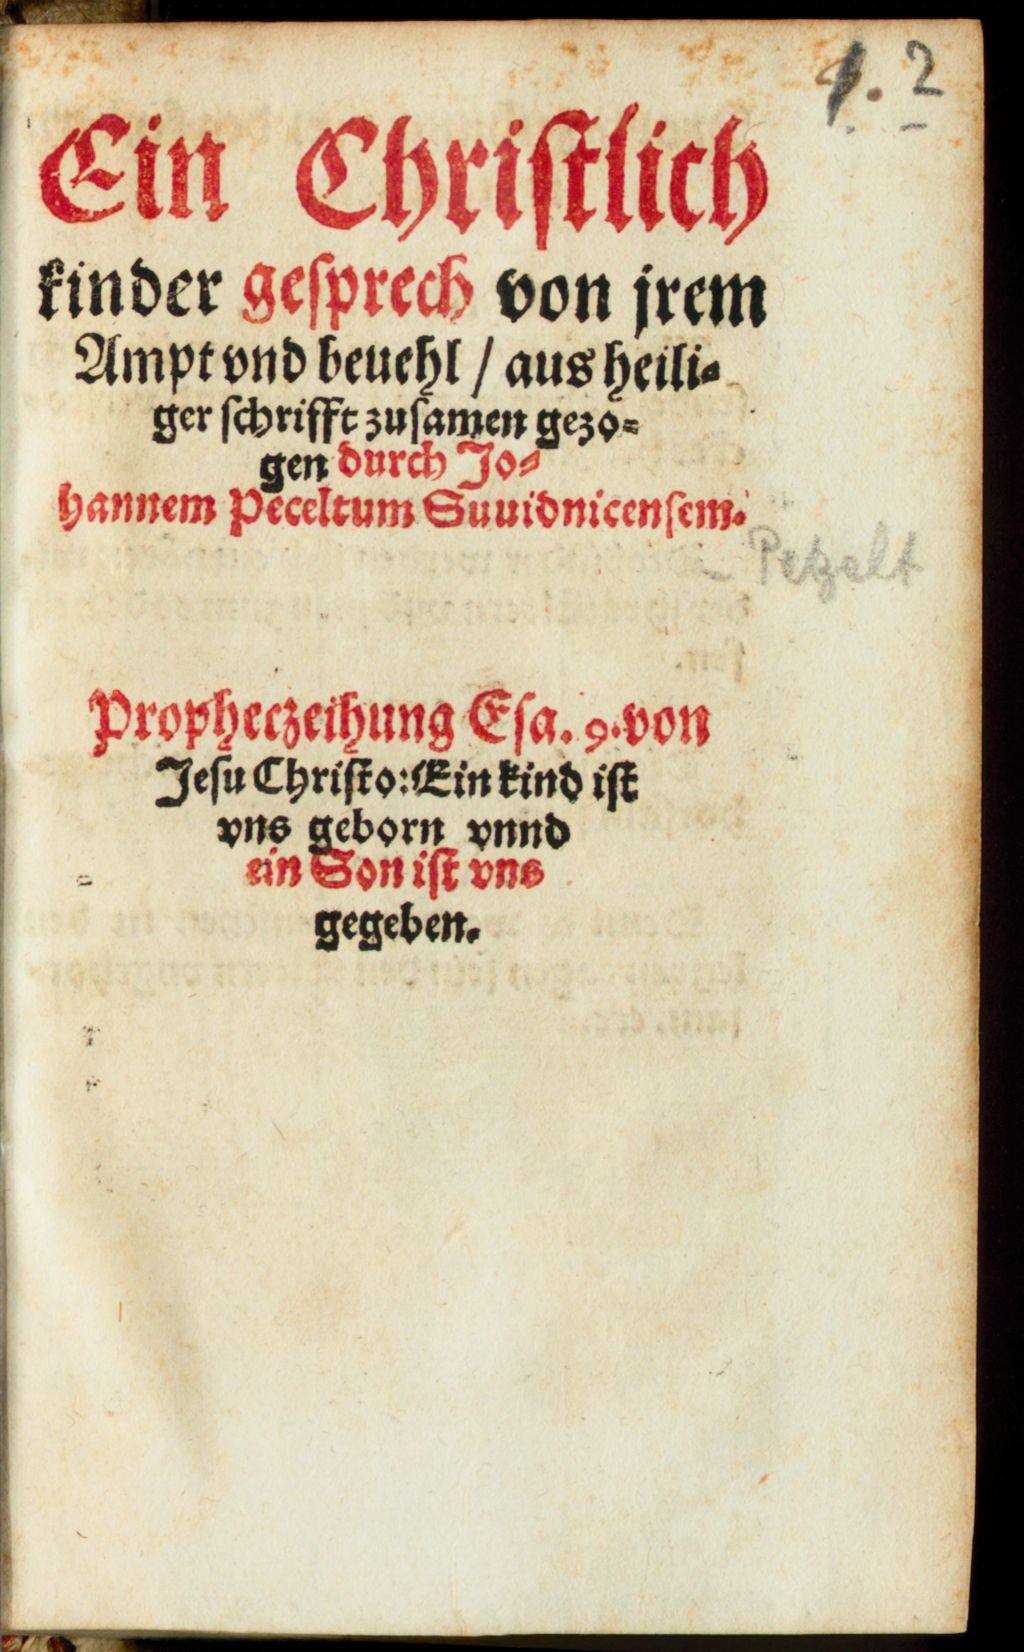 2
Ein Christlich
kinder gesprech von jrem
Ampt vnd beuehl / aus heili-
ger schrifft zusamen gezo-
gen durch Jo-
hannem Peceltum Suuidnicensem.
Petzelt
Propheczeihung Esa. 9. von
Jesu Christo: Ein kind ist
vns geborn vnnd
ein Son ist vns
gegeben.